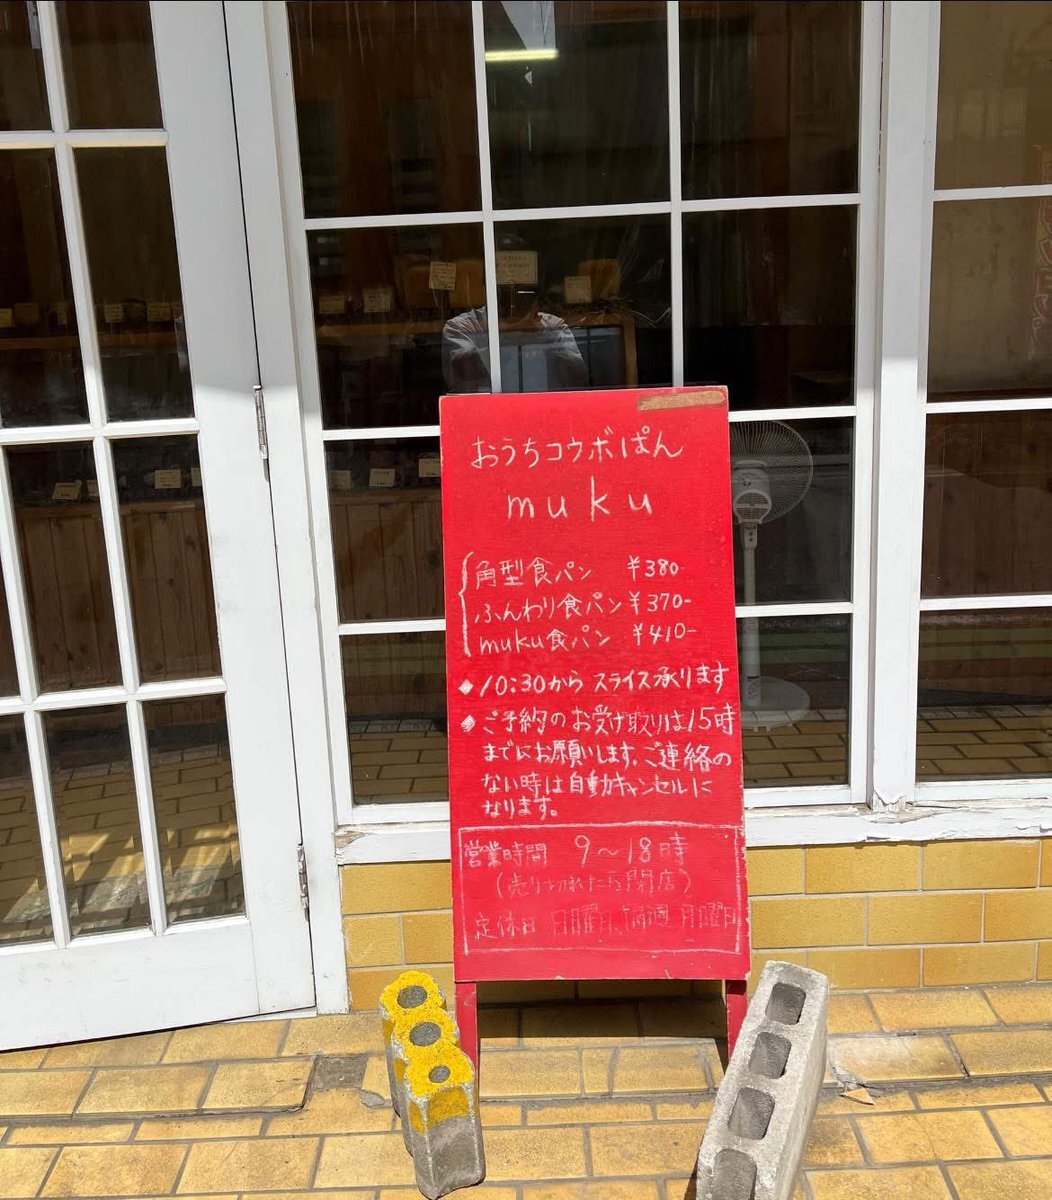 おうちコウボぱん
muku
角型食パン ¥380-
ふんわり食パン ¥370-
muku食パン ¥410-
◆10:30から スライス承ります
◆ご予約のお受け取りは15時
までにお願いします。ご連絡の
ない時は自動キャンセルに
なります。
営業時間 9〜18時
(売り切れたら閉店)
定休日 日曜日、隔週 月曜日